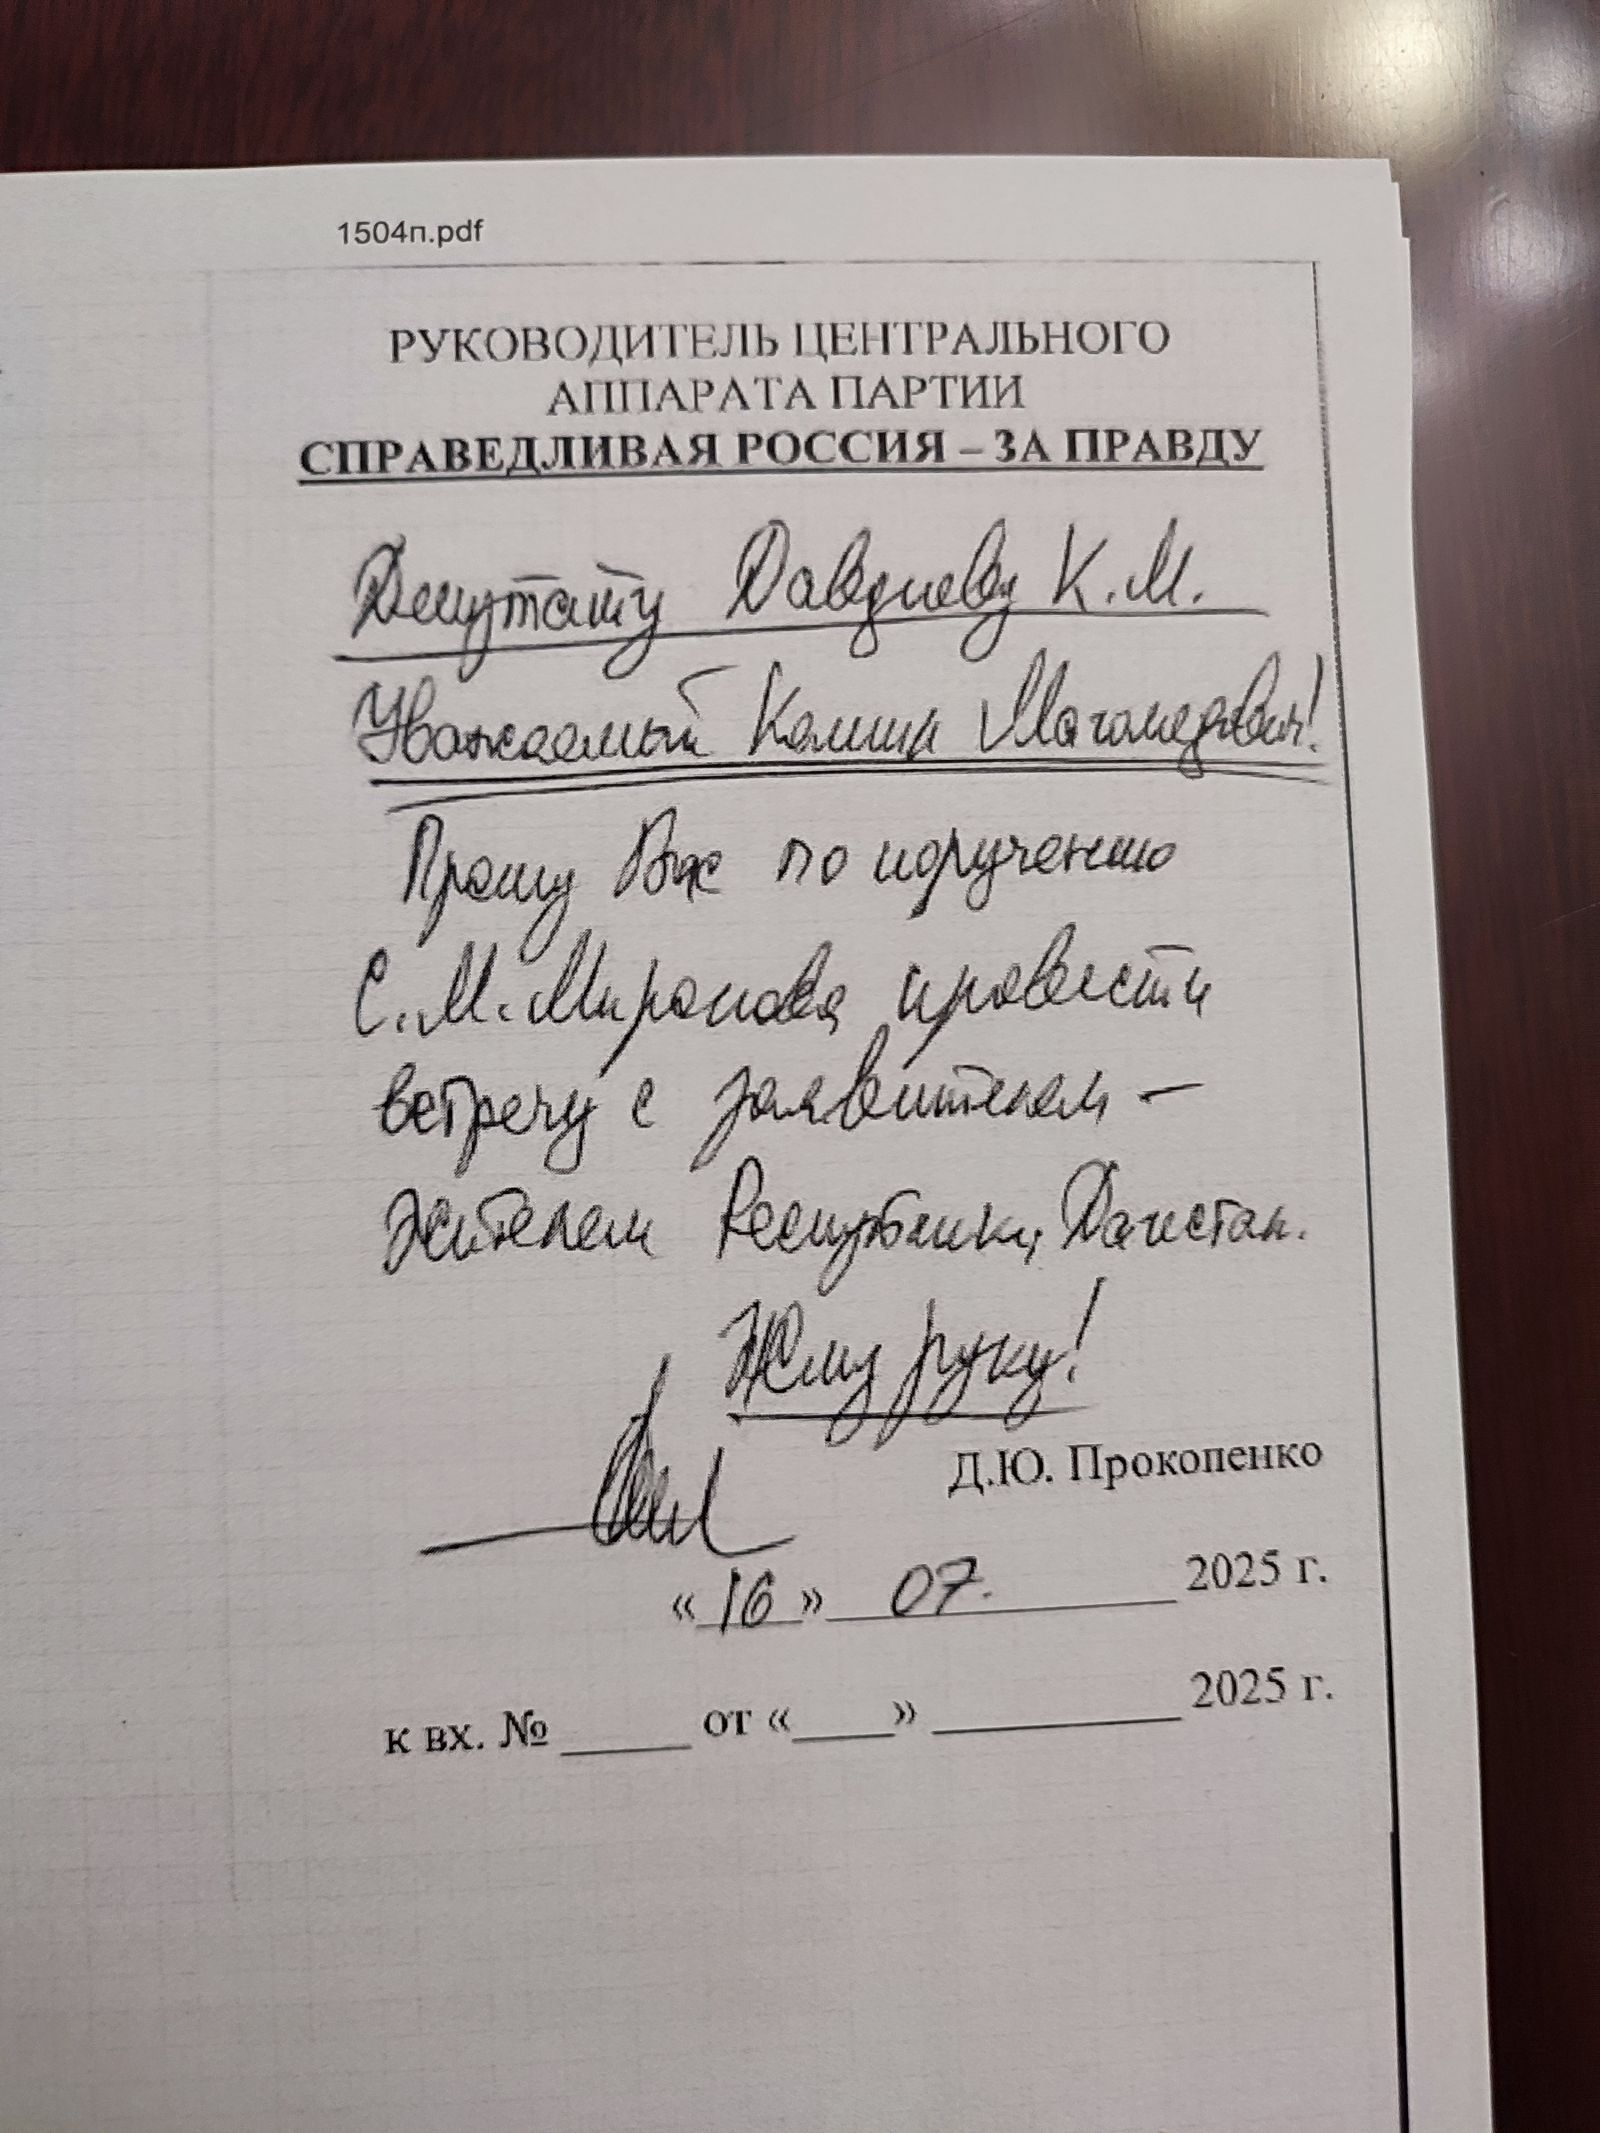 1504п.pdf
РУКОВОДИТЕЛЬ ЦЕНТРАЛЬНОГО
АППАРАТА ПАРТИИ
СПРАВЕДЛИВАЯ РОССИЯ – ЗА ПРАВДУ
Депутату Давдиеву К.М.
Уважаемый Камил Магомедович!
Прошу Вас по поручению
С.М. Миронова провести
встречу с заявителем –
жителем Республики Дагестан.
Жму руку!
Д.Ю. Прокопенко
«16» 07. 2025 г.
к вх. № _____ от «____» __________ 2025 г.